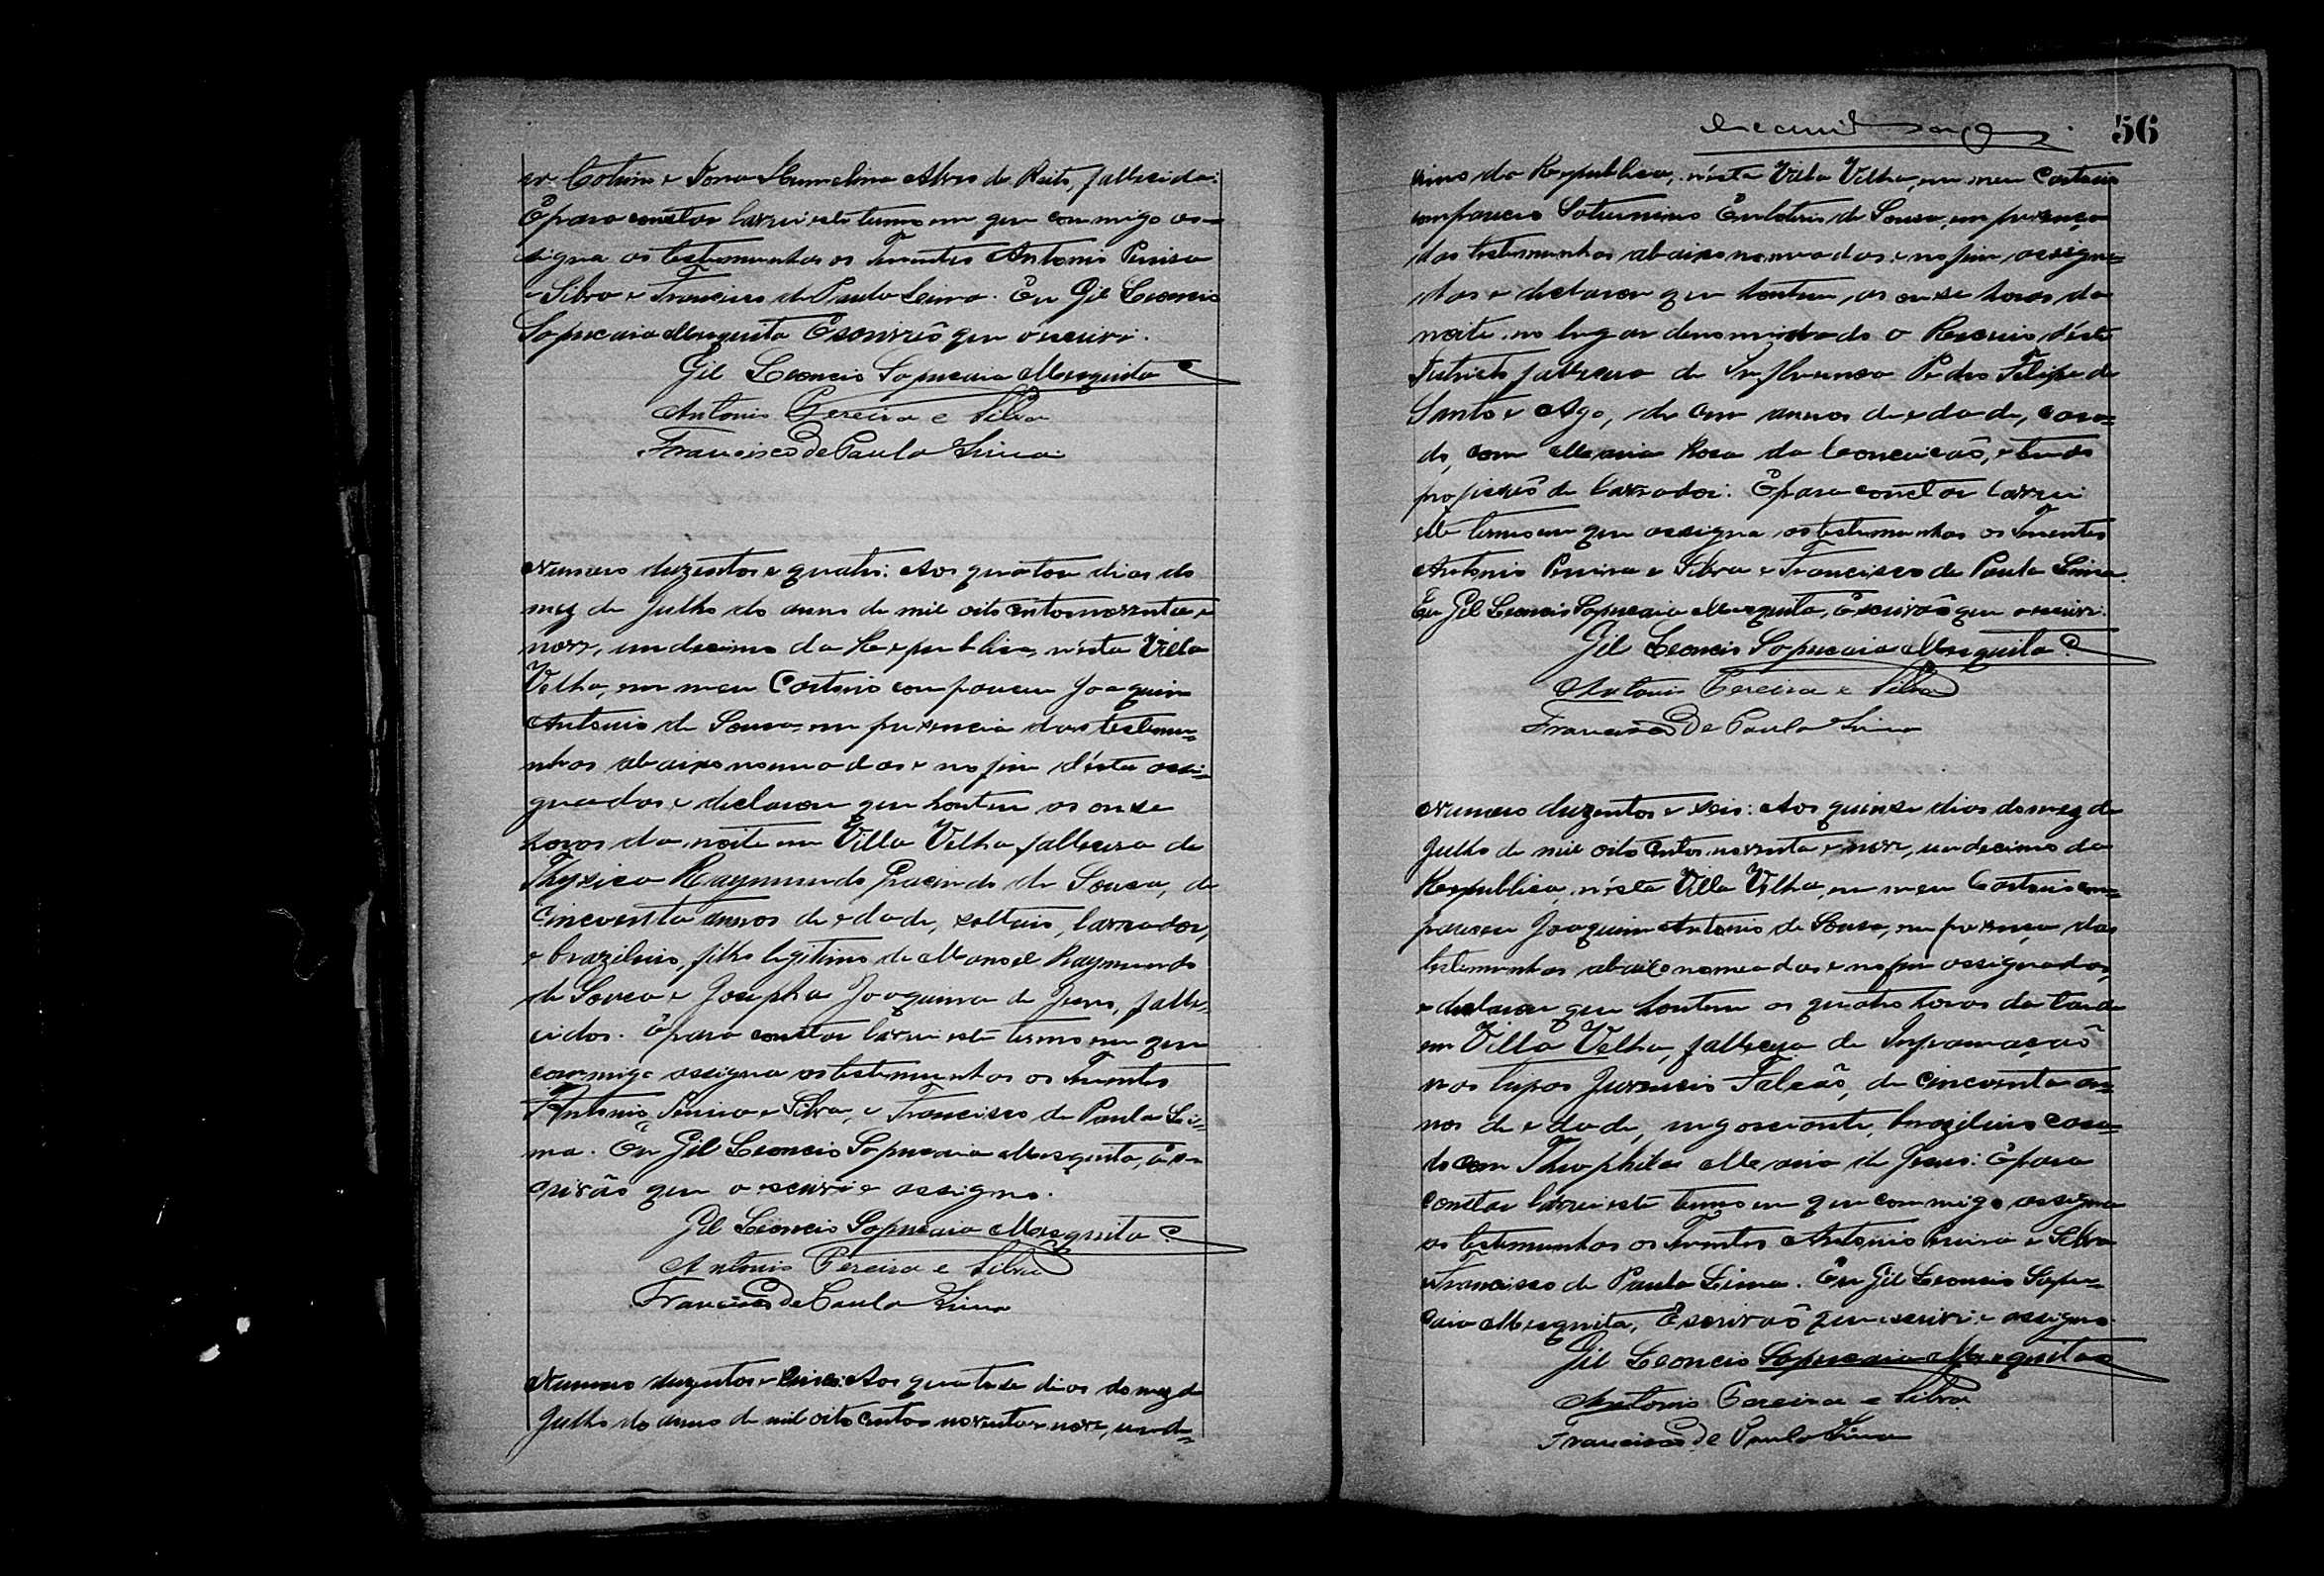 Cotrim e Dona Alves de Reits, fallecida.
E para constar lavrei este termo em que commigo as-
signa as testemunhas os Tenentes Antonio Pereira
e Silva e Francisco de Paula Lima. Eu Gil Leoncio
Sapucaia Mesquita Escrivão que o escrivi.
Gil Leoncio Sapucaia Mesquita
Antonio Pereira e Silva
Francisco de Paula Lima
Numero duzentos e quatro: Aos quatorze dias do
mez de Julho do anno de mil oito centos noventa e
nove, undecimo da Republica, nésta Villa
Velha, em meu Cartorio compareceu Joaquim
Antonio de Sousa, em presencia das testemu-
nhas abaixo nomeadas e no fim désta assi-
gnadas, e declarou que hontem as onse
horas da noite em Villa Velha fallecera de
Thysica Raymundo Gracindo de Sousa, de
Cincoenta annos de edade, solteiro, lavrador,
e brazileiro, filho legitimo de Manoel Raymundo
de Sousa e Josepha Joaquina de Jesus, falle-
cidos. E para constar lavrei este termo em que
commigo assigna as testemunhas os Tenentes
Antonio Pereira e Silva, e Francisco de Paula Li-
ma. Eu Gil Leoncio Sapucaia Mesquita, Es-
crivão que o escrivi e assigno.
Gil Leoncio Sapucaia Mesquita
Antonio Pereira e Silva
Francisco de Paula Lima
Numero duzentos e cinco: Aos quatorse dias do mez de
Julho do anno de mil oito centos noventa e nove, unde-
56
cimo da Republica, nésta Villa Velha, em meu Cartorio
compareceo Saturnino de Sousa, em presença
das testemunhas abaixo nomeadas e no fim assigna-
das e declarou que hontem, as onse horas da
noite no lugar denominado o déste
Districto fallecera de Influenza Pedro Felipe de
Santo e Ago, de cem annos de edade, casa-
do, com Maria Rosa da Conceicão, e tendo
profissão de lavrador. E para constar lavrei
este termo em que assigna as testemunhas os Tenentes
Antonio Pereira e Silva e Francisco de Paula Lima.
Eu Gil Leoncio Sapucaia Mesquita, Escrivão que o escrivi.
Gil Leoncio Sapucaia Mesquita
Antonio Pereira e Silva
Francisco De Paula Lima
Numero duzentos e seis: Aos quinse dias do mez de
Julho de mil oito centos noventa e nove, undecimo da
Republica, nésta Villa Velha, em meu Cartorio com-
pareceu Joaquim Antonio de Sousa, em presença das
testemunhas abaixo nomeadas e no fim assignadas,
e declarou que hontem as quatro horas da tarde
em Villa Velha, fallecera de Inframação
nas tripas Juvencio Falcão, de cincoenta an-
nos de edade, negociante, brazileiro casa-
do com Theophila Maria de Jesus: E para
constar lavrei este termo em que commigo assigna
as testemunhas os Tenentes Antonio Pereira e Silva
e Francisco de Paula Lima. Eu Gil Leoncio Sapu-
caia Mesquita, Escrivão que escrivi e assigno.
Gil Leoncio Sapucaia Mesquita
Antonio Pereira e Silva
Francisco De Paula Lima